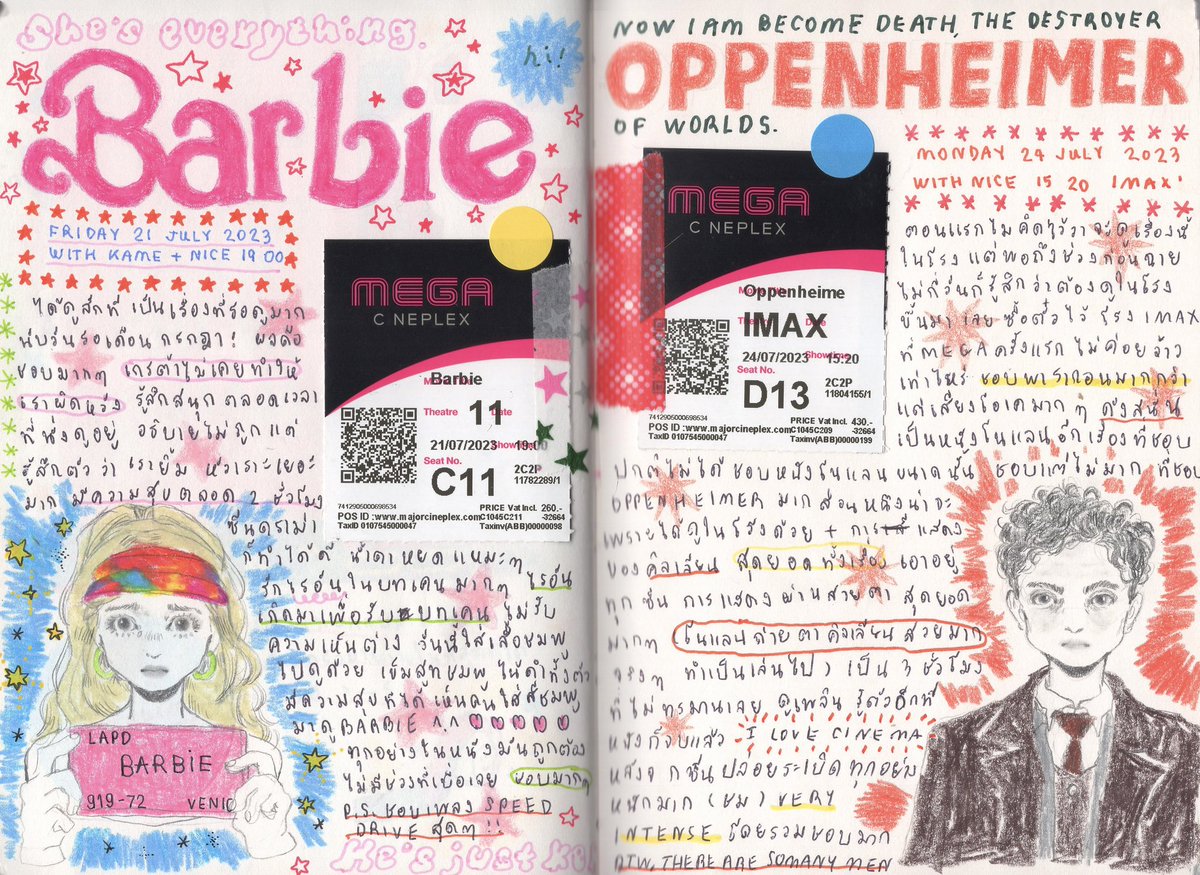 She's everything.
Barbie
hi!
FRIDAY 21 JULY 2023
WITH KAME + NICE 19 00
ได้ดูสักที เป็นเรื่องที่รอดูมาก
นับวันรอเดือนกรกฎา! ผลคือ
ชอบมากๆ เกรต้าไม่เคยทำให้
เราผิดหวัง รู้สึกสนุกตลอดเวลา
ที่นั่งดูอยู่ อธิบายไม่ถูก แต่
รู้สึกตัวว่าเรายิ้ม หัวเราะเยอะ
มาก มีความสุขตลอด 2 ชั่วโมง
ซีนดราม่า
ก็ทำได้ดี น้ำตาหยดแหมะๆ
รักไรอันในบทเคนมากๆ ไรอัน
เกิดมาเพื่อรับบทเคน ไม่รับ
ความเห็นต่าง วันนี้ใส่เสื้อชมพู
ไปดูด้วย เข็มสูทชมพู ไนล์ดำทั้งตัว
มีความสุขที่ได้เห็นคนใส่สีชมพู
มาดู BARBIE ^^ ♥♥♥♥♥♥
ทุกอย่างในหนังมันถูกต้อง
ไม่มีช่วงที่เบื่อเลย ชอบมากๆ
P.S. ชอบเพลง SPEED
DRIVE สุดๆ!!
He's just ke
LAPD
BARBiE
919-72 VENIC
MEGA
CINEPLEX
Barbie
Theatre 11 Date
21/07/2023 Showtime 19:00
Seat No.
C11
2C2P
11782289/1
7412905000698534
PRICE Vat Incl. 260.-
POS ID :www.majorcineplex.com C1045C211 -32664
TaxID 0107545000047 Taxinv(ABB)00000098
NOW I AM BECOME DEATH, THE DESTROYER
OPPENHEIMER
OF WORLDS.
MONDAY 24 JULY 2023
WITH NICE 15 20 IMAX'
MEGA
CINEPLEX
Oppenheime
IMAX
24/07/2023 Showtime 15:20
Seat No.
D13
2C2P
11804155/1
7412905000698534
PRICE Vat Incl. 430.-
POS ID :www.majorcineplex.com C1045C209 -32664
TaxID 0107545000047 Taxinv(ABB)00000199
ตอนแรกไม่คิดไว้ว่าจะดูเรื่องนี้
ในโรง แต่พอถึงช่วงก่อนฉาย
ไม่กี่วันก็รู้สึกว่าต้องดูในโรง
ขึ้นมาเลย ซื้อตั๋วไว้ โรง IMAX
ที่ MEGA ครั้งแรก ไม่ค่อยว้าว
เท่าไหร่ ชอบพารากอนมากกว่า
แต่เสียงโอเคมากๆ ดังสนั่น
เป็นหนังโนแลนอีกเรื่องที่ชอบ
ปกติไม่ได้ชอบหนังโนแลนขนาดนั้น ชอบแต่ไม่มาก ที่ชอบ
OPPENHEIMER มากส่วนหนึ่งน่าจะ
เพราะได้ดูในโรงด้วย + การแสดง
ของคิลเลียน สุดยอดทั้งเรื่อง เอาอยู่
ทุกซีน การแสดงผ่านสายตา สุดยอด
มากๆ โนแลนถ่ายตาคิลเลียนสวยมาก
จริงๆ ทำเป็นเล่นไป เป็น 3 ชั่วโมง
ที่ไม่ทรมานเลย ดูเพลิน รู้ตัวอีกที
หนังก็จบแล้ว I LOVE CINEMA
หลังจากซีนปล่อยระเบิดทุกอย่าง
หนักมาก (ชม) VERY
INTENSE โดยรวมชอบมาก
BTW, THERE ARE SO MANY MEN